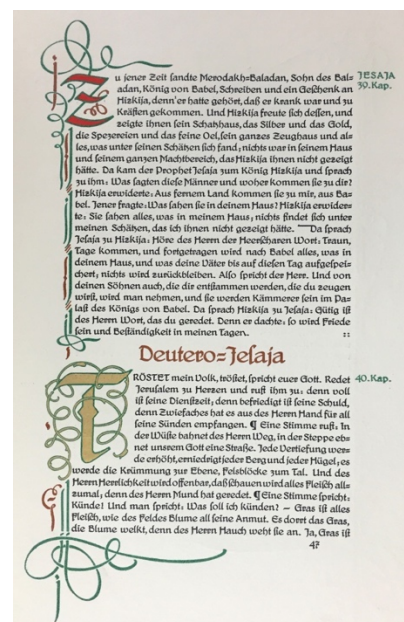 Zu jener Zeit sandte Merodakh-Baladan, Sohn des Bal-
adan, König von Babel, Schreiben und ein Geschenk an
Hizkija, denn er hatte gehört, daß er krank war und zu
Kräften gekommen. Und Hizkija freute sich dessen, und
zeigte ihnen sein Schatzhaus, das Silber und das Gold,
die Spezereien und das feine Oel, sein ganzes Zeughaus und al-
les, was unter seinen Schätzen sich fand; nichts war in seinem Haus
und seinem ganzen Machtbereich, das Hizkija ihnen nicht gezeigt
hätte. Da kam der Prophet Jesaja zum König Hizkija und sprach
zu ihm: Was sagten diese Männer und woher kommen sie zu dir?
Hizkija erwiderte: Aus fernem Land kommen sie zu mir, aus Ba-
bel. Jener fragte: Was sahen sie in deinem Haus? Hizkija erwider-
te: Sie sahen alles, was in meinem Haus; nichts findet sich unter
meinen Schätzen, das ich ihnen nicht gezeigt hätte. Da sprach
Jesaja zu Hizkija: Höre des Herrn der Heerscharen Wort: Traun,
Tage kommen, und fortgetragen wird nach Babel alles, was in
deinem Haus, und was deine Väter bis auf diesen Tag aufgespei-
chert; nichts wird zurückbleiben. Also spricht der Herr. Und von
deinen Söhnen auch, die dir entstammen werden, die du zeugen
wirst, wird man nehmen, und sie werden Kämmerer sein im Pa-
last des Königs von Babel. Da sprach Hizkija zu Jesaja: Gütig ist
des Herrn Wort, das du geredet. Denn er dachte: so wird Friede
sein und Beständigkeit in meinen Tagen. ::
JESAJA
39. Kap.
Deutero=Jesaja
TRÖSTET mein Volk, tröstet, spricht euer Gott. Redet
Jerusalem zu Herzen und ruft ihm zu: denn voll
ist seine Dienstzeit; denn befriedigt ist seine Schuld,
denn Zwiefaches hat es aus des Herrn Hand für all
seine Sünden empfangen. ¶ Eine Stimme ruft: In
der Wüste bahnet des Herrn Weg, in der Steppe eb-
net unserm Gott eine Straße. Jede Vertiefung wer-
de erhöht, erniedrigt jeder Berg und jeder Hügel; es
werde die Krümmung zur Ebene, Felsblöcke zum Tal. Und des
Herrn Herrlichkeit wird offenbar, daß schauen wird alles Fleisch all-
zumal; denn des Herrn Mund hat geredet. ¶ Eine Stimme spricht:
Künde! Und man spricht: Was soll ich künden? – Gras ist alles
Fleisch, wie des Feldes Blume all seine Anmut. Es dorrt das Gras,
die Blume welkt, denn des Herrn Hauch weht sie an. Ja, Gras ist
40. Kap.
47